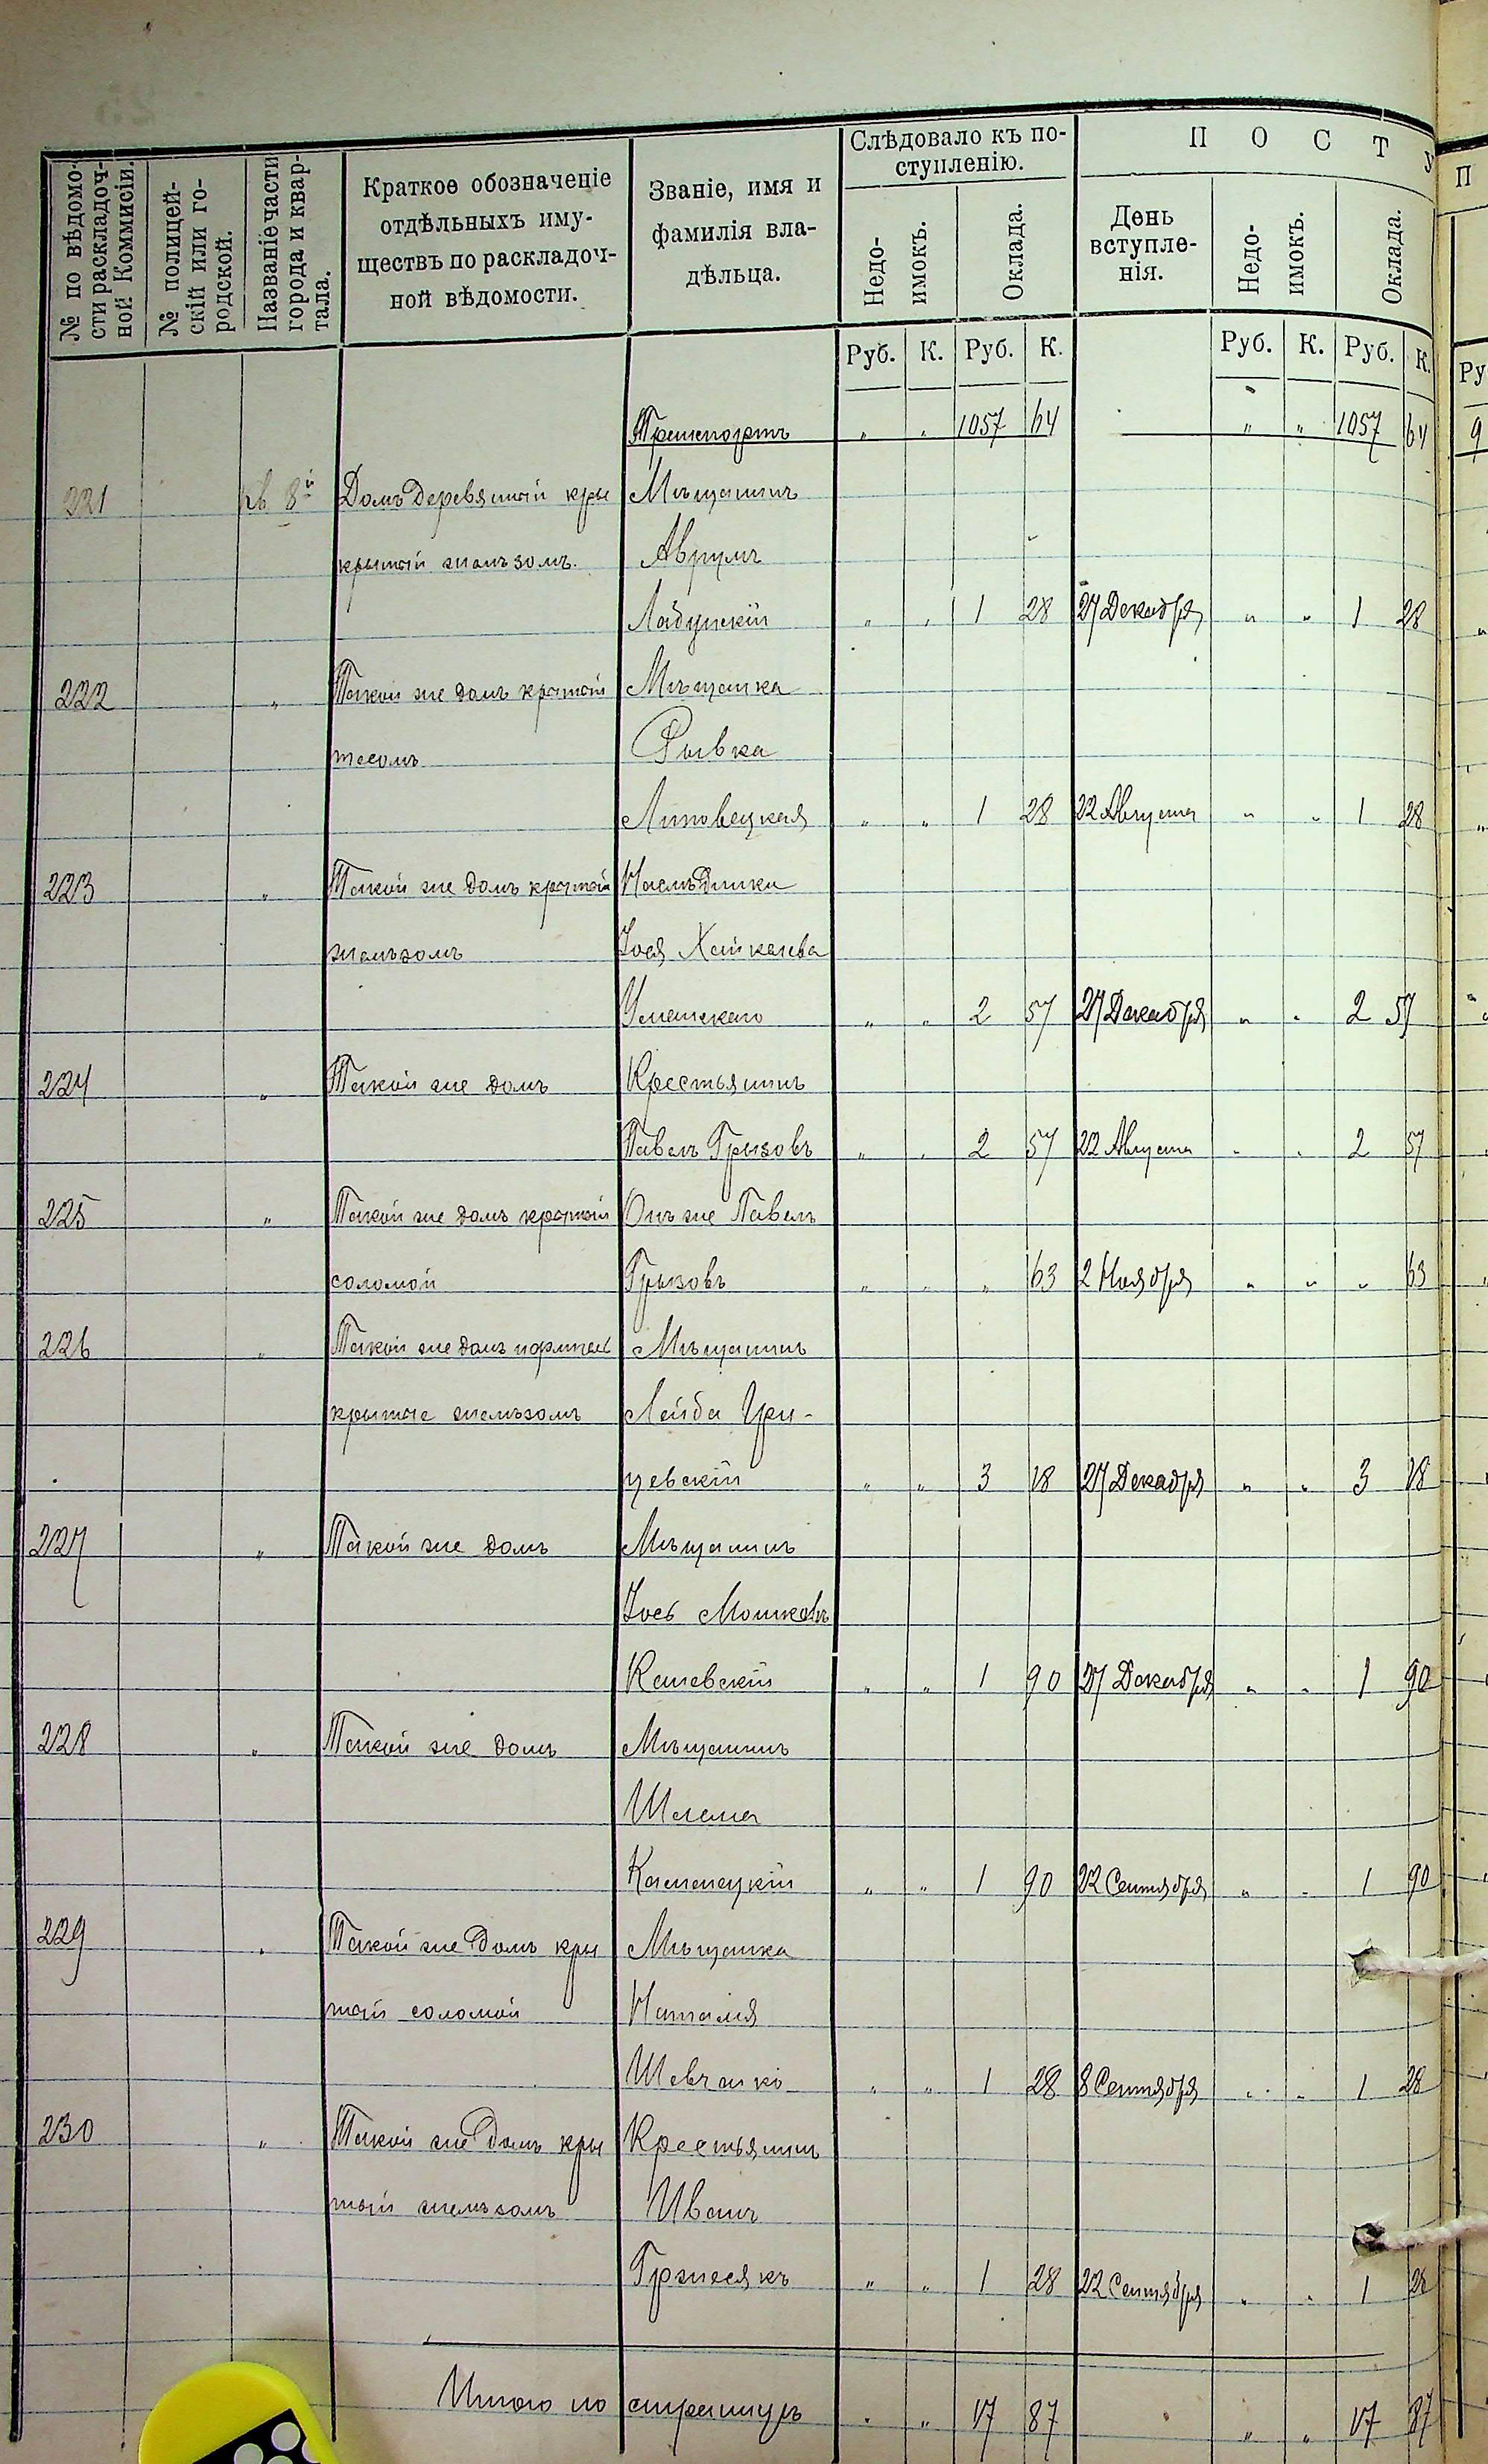 № по вѣдомо-
сти раскладоч-
ной Коммисіи.
№ полицей-
скій или го-
родской.
Названіе части
города и квар-
тала.
Краткое обозначеніе
отдѣльныхъ иму-
ществъ по раскладоч-
ной вѣдомости.
Званіе, имя и
фамилія вла-
дѣльца.
Слѣдовало къ по-
ступленію.
Недо-
имокъ.
Оклада.
П О С Т У
День
вступле-
нія.
Недо-
имокъ.
Оклада.
П
Руб. К. Руб. К. Руб. К. Руб. К. Ру
Транспортъ " " 1057 64 " " 1057 64 9
221 кв 8й Домъ деревянный кры Мѣщанинъ
крытый желѣзомъ. Аврумъ
" " 1 28 27 Декабря " " 1 28
222 " Такой же домъ крытый Мѣщанка
тесомъ Рывка
Липовецкая " " 1 28 22 Августа " " 1 28
223 " Такой же домъ крытый Наслѣдники
желѣзомъ Іося Хаикелева
Уманскаго " " 2 57 27 Декабря " " 2 57
224 " Такой же домъ Крестьянинъ
Павелъ Грызовъ " " 2 57 22 Августа " " 2 57
225 " Такой же домъ крытый Онъ же Павелъ
соломой Грызовъ " " " 63 2 Ноября " " " 63
226 " Такой же домъ Мѣщанинъ
крытые желѣзомъ Лейба Ури-
цевскій " " 3 18 27 Декабря " " 3 18
227 " Такой же домъ Мѣщанинъ
Іось Мошковъ
Каневскій " " 1 90 27 Декабря " " 1 90
228 " Такой же домъ Мѣщанинъ
Шлема
Каменецкій " " 1 90 22 Сентября " " 1 90
229 " Такой же домъ кры Мѣщанка
тый соломой Наталія
Шевченко " " 1 28 8 Сентября " " 1 28
230 " Такой же домъ кры Крестьянинъ
тый желѣзомъ Иванъ
" " 1 28 22 Сентября " " 1 28
Итого по страницѣ " " 17 87 " " 17 87